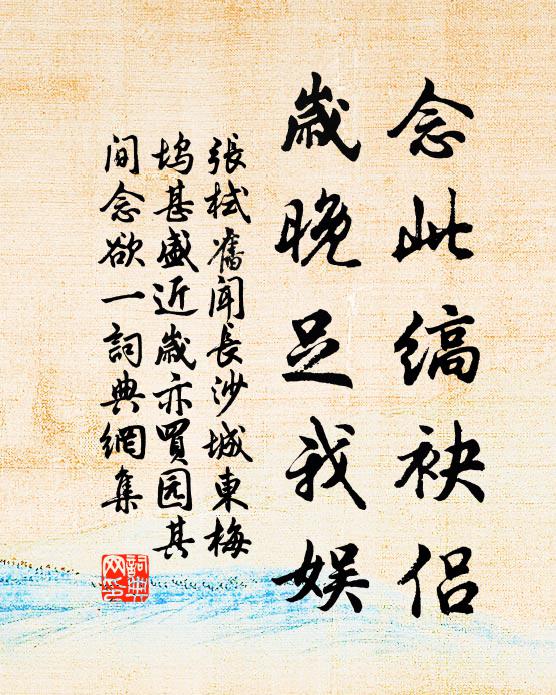 念此縞袂侣
歲晚足我娱
張栻舊聞長沙城東梅
塢甚盛近歲亦買园其
间念欲一詞典網集
詞典网印